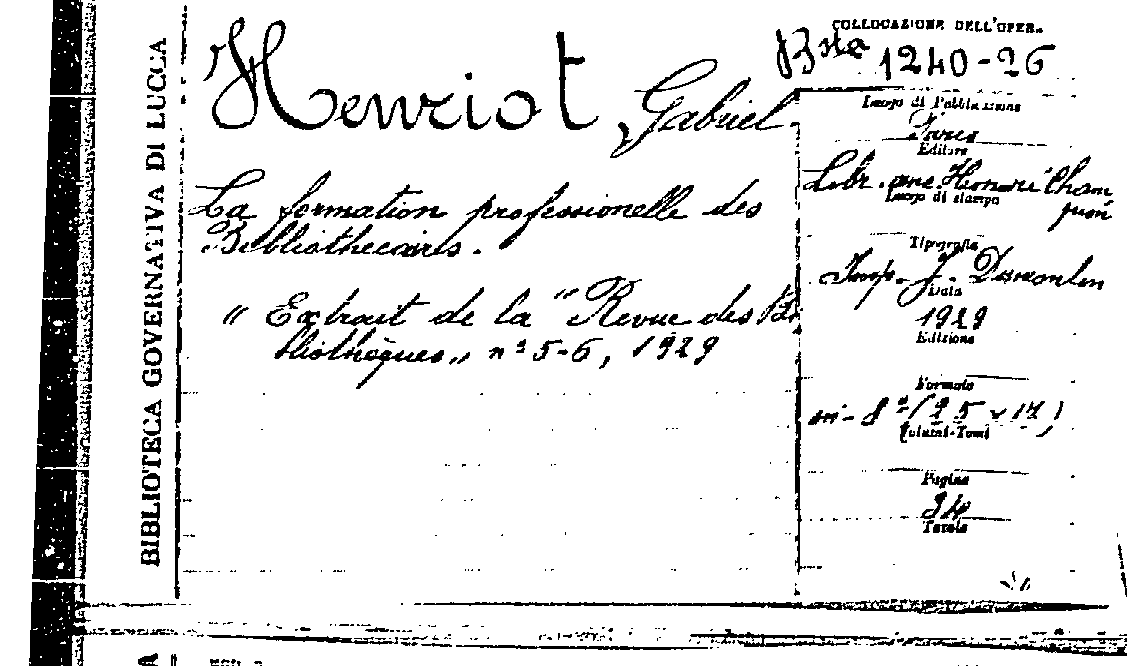 BIBLIOTECA GOVERNATIVA DI LUCCA
Henriot, Gabriel.
La formation professionelle des
Bibliothecaires.
" Extrait de la "Revue des Bi
bliothèques" n° 5-6, 1929
COLLOCAZIONE DELL'OPER.
Bsta 1240-26
Luogo di Pubblicazione
Paris
Editore
Libr. anc. Honoré Cham
pion
Luogo di stampa
Tipografia
Imp. J.
Data
1929
Edizione
Formato
in-8° (25 x 17)
Volumi-Tomi
Pagine
34
Tavole